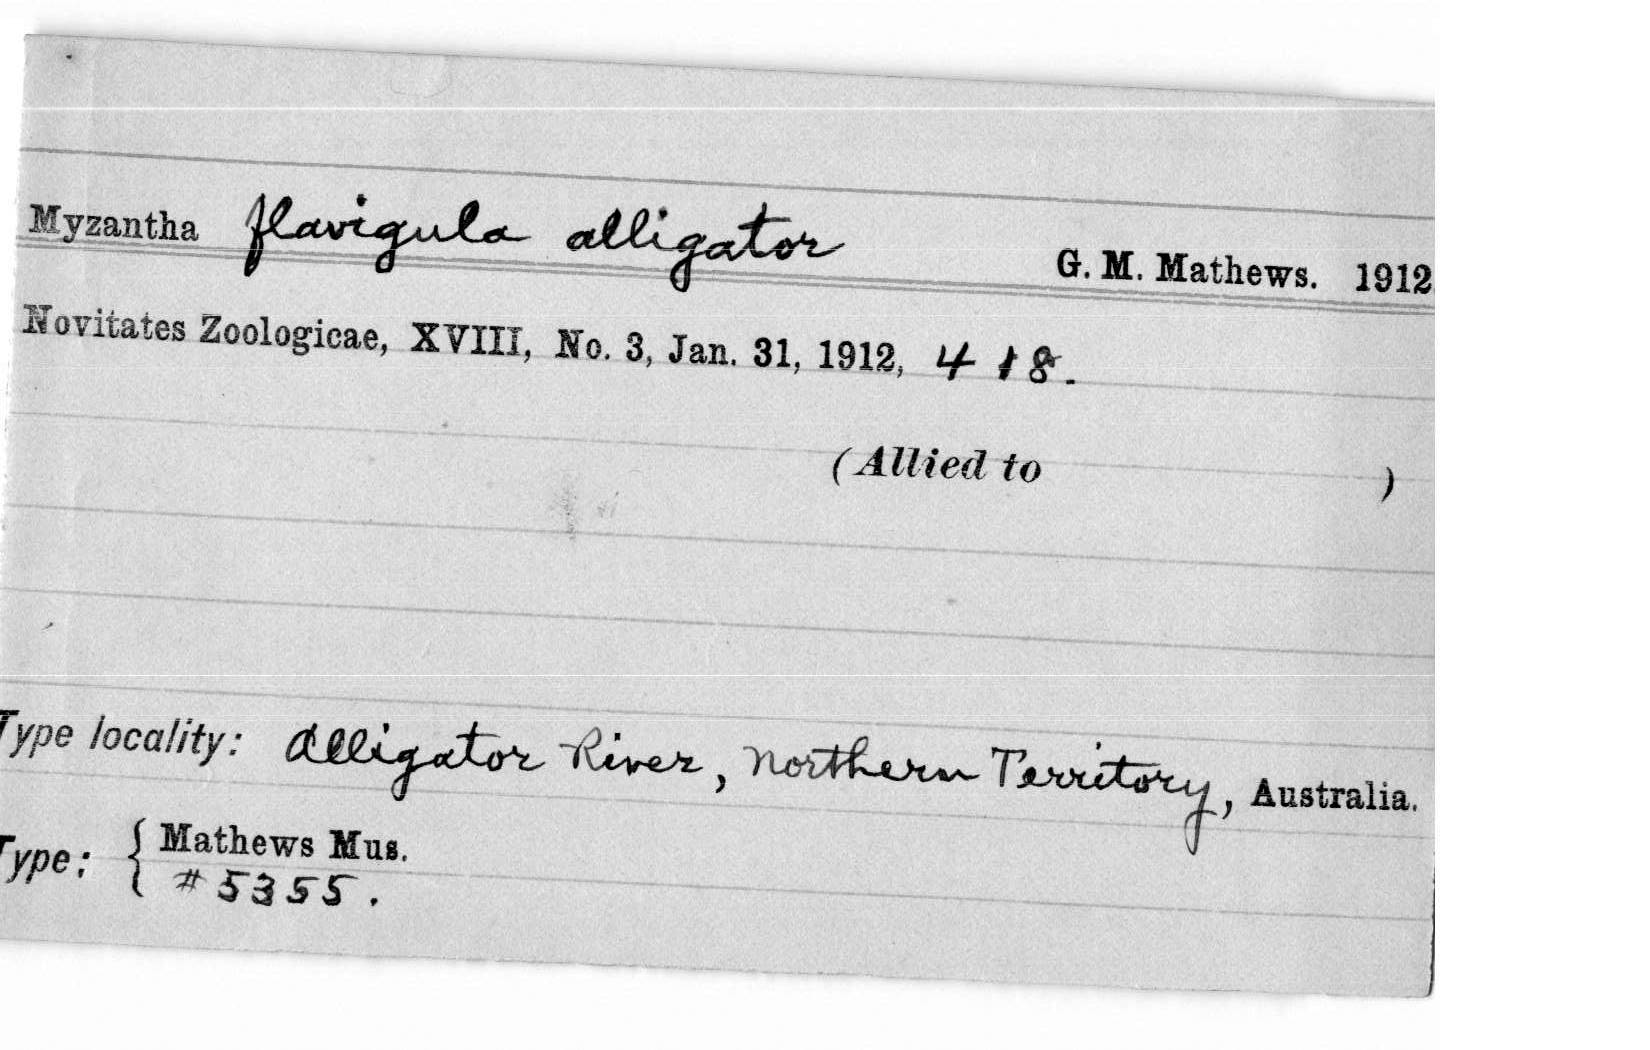 Myzantha flavigula alligator G. M. Mathews. 1912
Novitates Zoologicae, XVIII, No. 3, Jan. 31, 1912, 418.
(Allied to )
Type locality: Alligator River, Northern Territory, Australia.
Type: { Mathews Mus.
#5355.